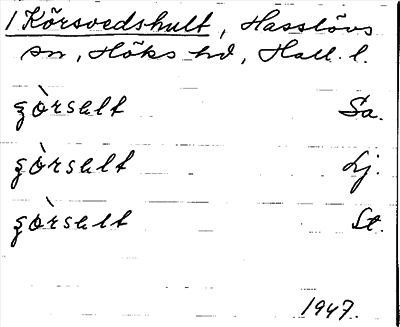 1 Körsvedshult, Hasslövs
sn, Höks hd, Hall. l.
ȝòrsult Sa.
ȝòrsult Lj.
ȝòrsult St.
1947.